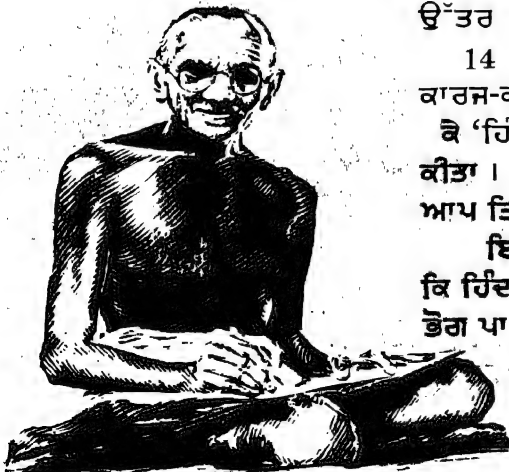 ਉੱਤਰ
14
ਕਾਰਜ-ਕ
ਕੈ ‘ਹਿੰ
ਕੀਤਾ ।
ਆਪ ਤਿ
ਇ
ਕਿ ਹਿੰਦ
ਭੋਗ ਪਾ